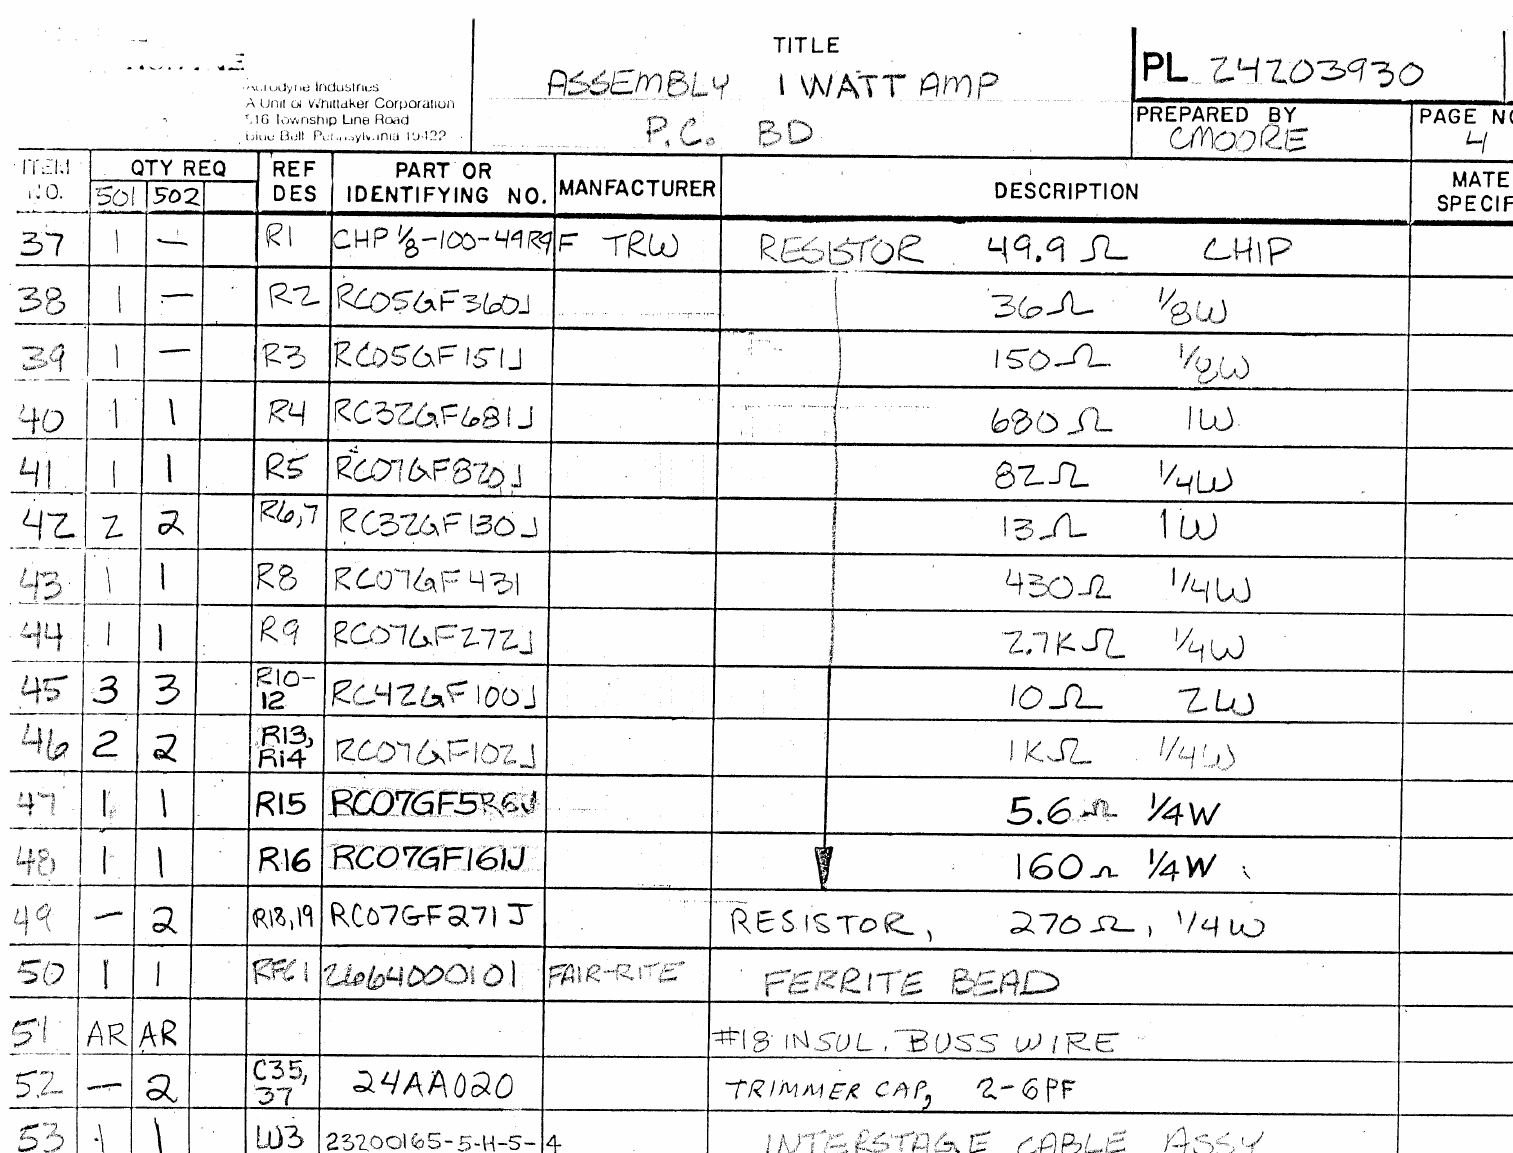 TITLE
ASSEMBLY 1 WATT AMP
P.C. BD
Industries
A Unit of Whittaker Corporation
Township Line Road
Blue Bell Pennsylvania 19422
PL 24203930
PREPARED BY
CMOORE
PAGE NO
4
ITEM NO. QTY REQ REF DES PART OR IDENTIFYING NO. MANFACTURER DESCRIPTION MATE SPECIF
501 502
37 1 — R1 CHP 1/8-100-49R9F TRW RESISTOR 49.9 Ω CHIP
38 1 — R2 RC05GF360J 36Ω 1/8W
39 1 — R3 RC05GF151J 150Ω 1/8W
40 1 1 R4 RC32GF681J 680Ω 1W
41 1 1 R5 RC07GF820J 82Ω 1/4W
42 2 2 R6,7 RC32GF130J 13Ω 1W
43 1 1 R8 RC07GF431 430Ω 1/4W
44 1 1 R9 RC07GF272J 2.7KΩ 1/4W
45 3 3 R10-12 RC42GF100J 10Ω 2W
46 2 2 R13, R14 RC07GF102J 1KΩ 1/4W
47 1 1 R15 RC07GF5R6J 5.6Ω 1/4W
48 1 1 R16 RC07GF161J 160Ω 1/4W
49 — 2 R18,19 RC07GF271J RESISTOR, 270Ω, 1/4W
50 1 1 RFC1 2664000101 FAIR-RITE FERRITE BEAD
51 AR AR #18 INSUL. BUSS WIRE
52 — 2 C35, 37 24AA020 TRIMMER CAP, 2-6PF
53 1 1 W3 23200165-5-H-5-4 INTERSTAGE CABLE ASSY